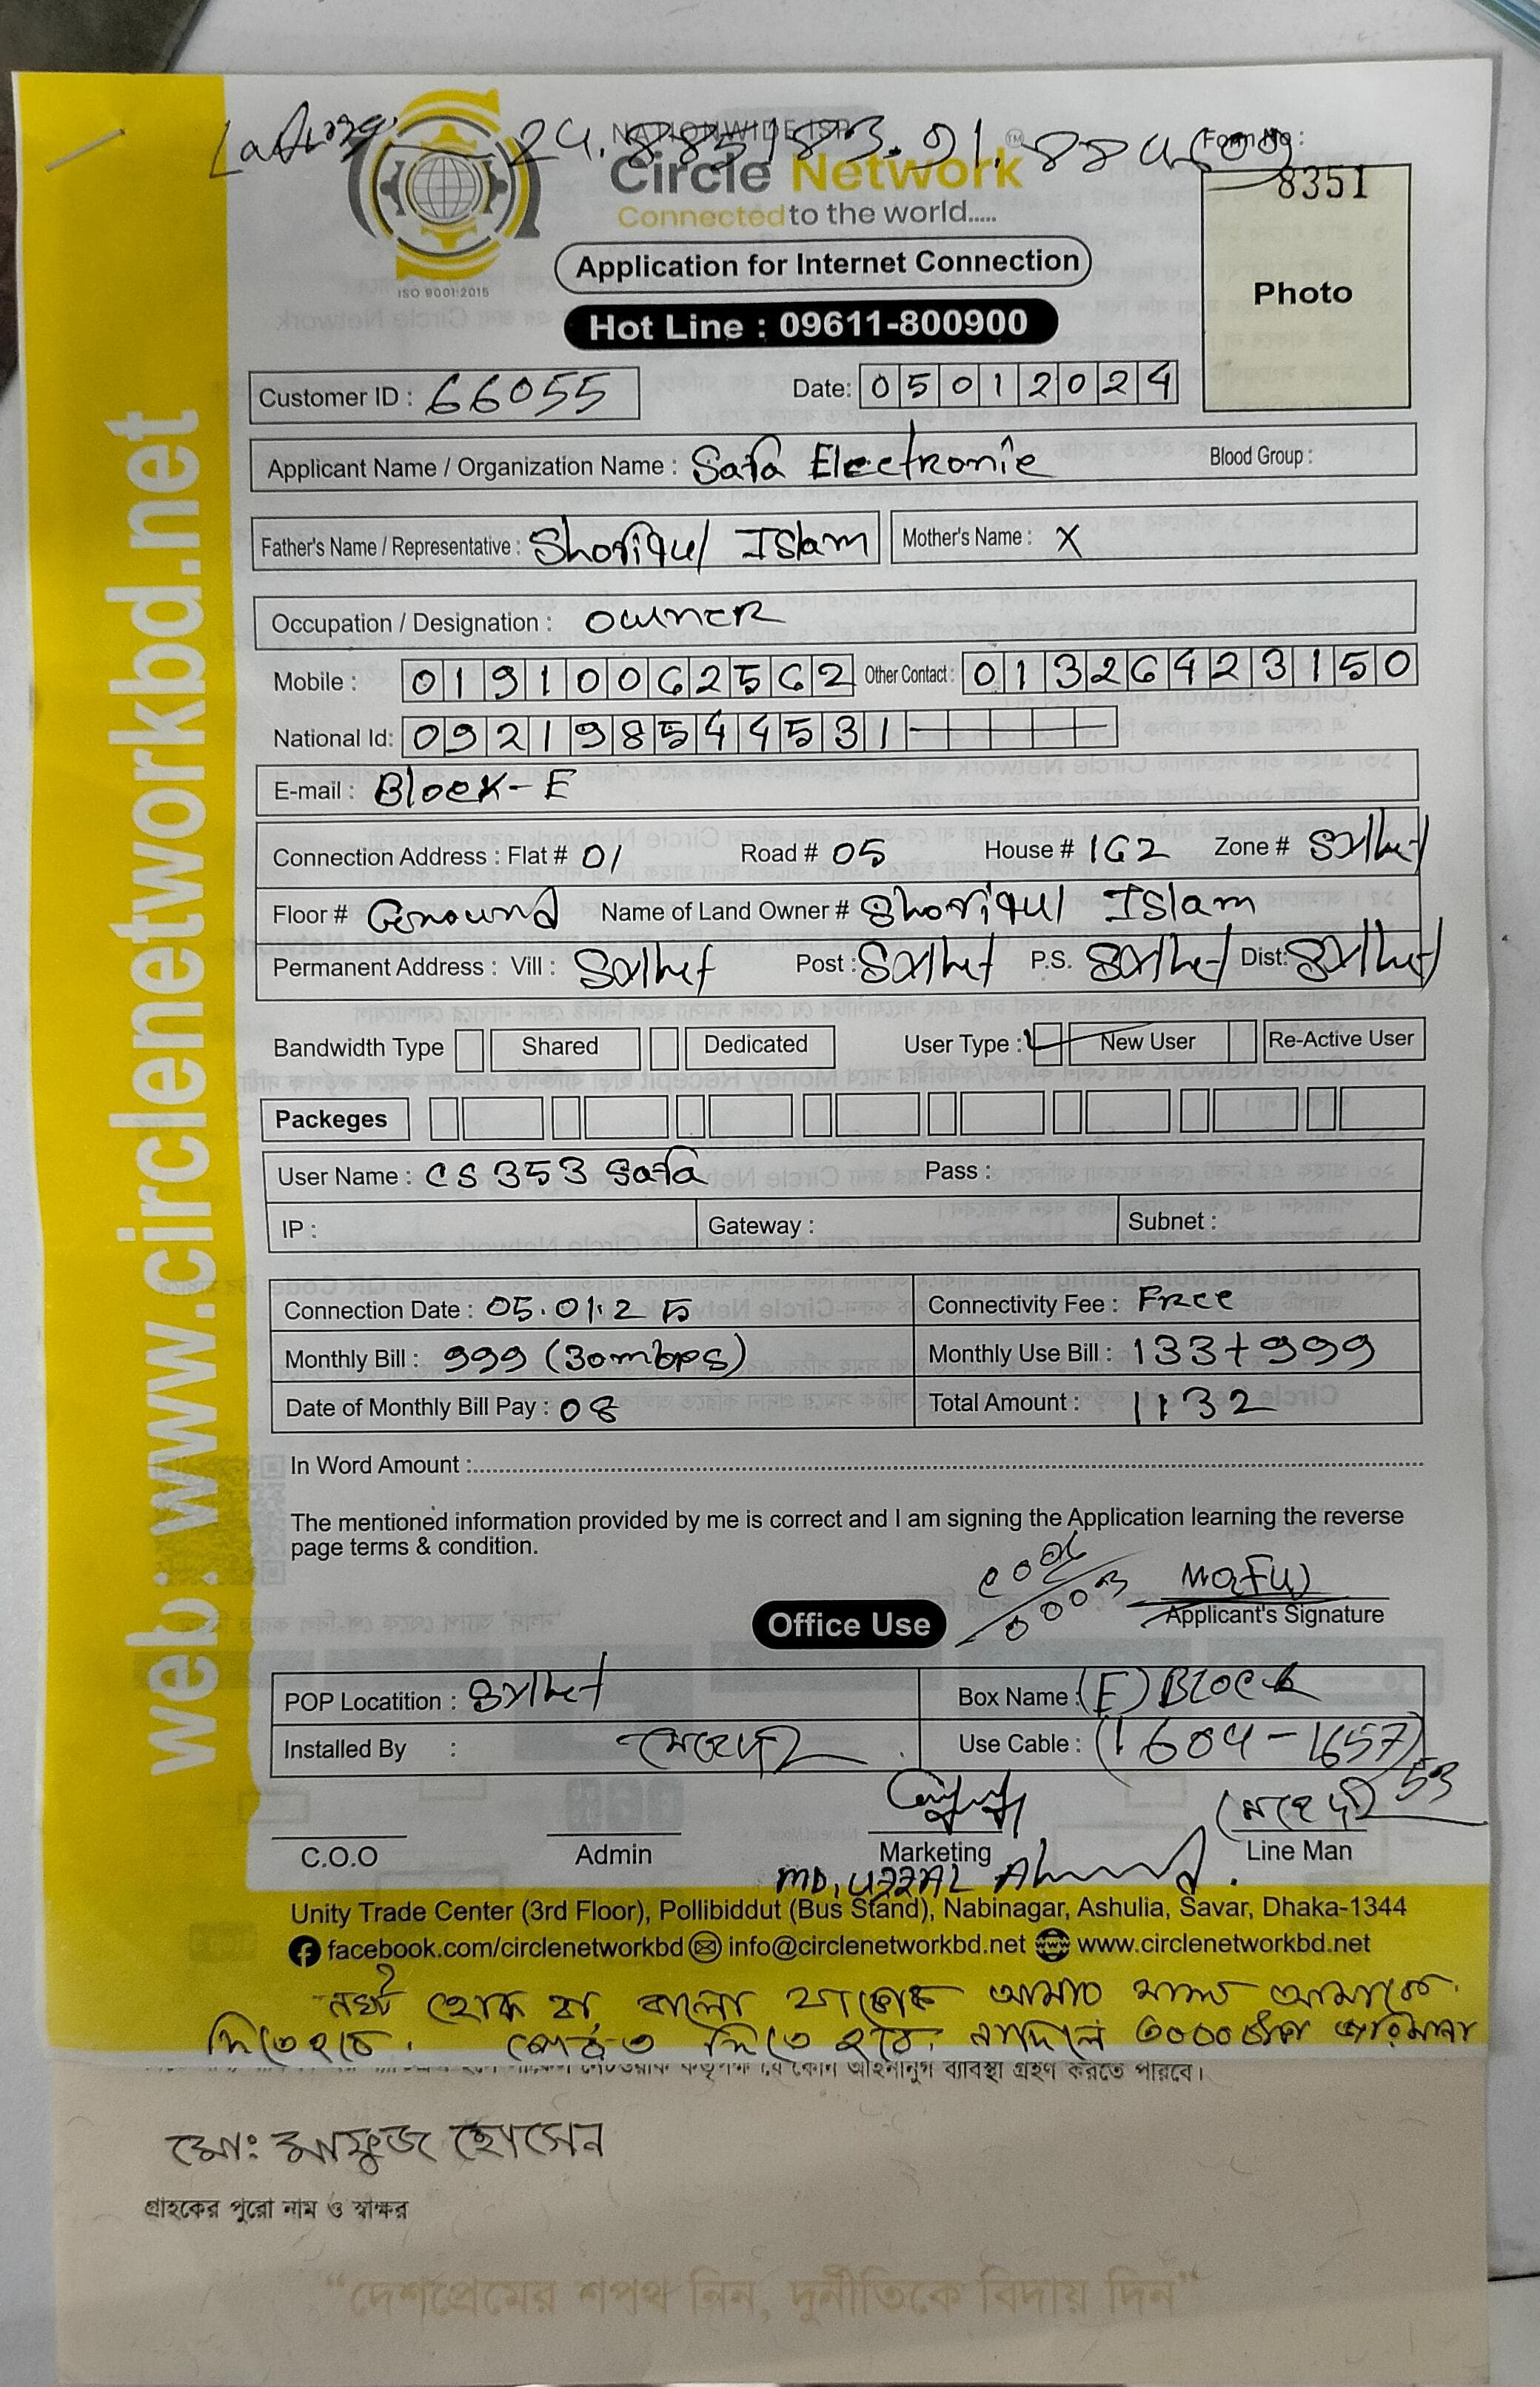 NATIONWIDE ISP
Circle Network™
Connected to the world.....
ISO 9001:2015
Form No :
8351
Photo
Application for Internet Connection
Hot Line : 09611-800900
Customer ID : 66055
Date: 05012024
Applicant Name / Organization Name : Safa Electronic
Blood Group :
Father's Name / Representative : Shofiqul Islam
Mother's Name : X
Occupation / Designation : OWNER
Mobile : 01910062562 Other Contact : 01326423150
National Id: 092198544531
E-mail : Block-E
Connection Address : Flat # 01 Road # 05 House # 162 Zone # Sylhet
Floor # Ground Name of Land Owner # Shofiqul Islam
Permanent Address : Vill : Sylhet Post : Sylhet P.S. Sylhet Dist: Sylhet
Bandwidth Type Shared Dedicated User Type : New User Re-Active User
Packeges
User Name : CS353 Safa Pass :
IP : Gateway : Subnet :
Connection Date : 05.01.25 Connectivity Fee : Free
Monthly Bill : 999 (30mbps) Monthly Use Bill : 133+999
Date of Monthly Bill Pay : 08 Total Amount : 1132
In Word Amount :
The mentioned information provided by me is correct and I am signing the Application learning the reverse
page terms & condition.
Mafuj
Applicant's Signature
Office Use
POP Locatition : Sylhet Box Name : (E) Block
Installed By : Use Cable : (1604-1657)
53
C.O.O Admin Marketing Line Man
MD. UZZAL Ahmed
Unity Trade Center (3rd Floor), Pollibiddut (Bus Stand), Nabinagar, Ashulia, Savar, Dhaka-1344
facebook.com/circlenetworkbd info@circlenetworkbd.net www.circlenetworkbd.net
web: www.circlenetworkbd.net
নষ্ট হোক বা ভালো থাকুক আমার মাল আমাকে
দিতে হবে. ফেরত দিতে হবে. না দিলে ৩০০০ টাকা জরিমানা
যে কোন আইনানুগ ব্যবস্থা গ্রহণ করতে পারবে।
মো: মাফুজ হোসেন
গ্রাহকের পুরো নাম ও স্বাক্ষর
“দেশপ্রেমের শপথ নিন, দুর্নীতিকে বিদায় দিন”